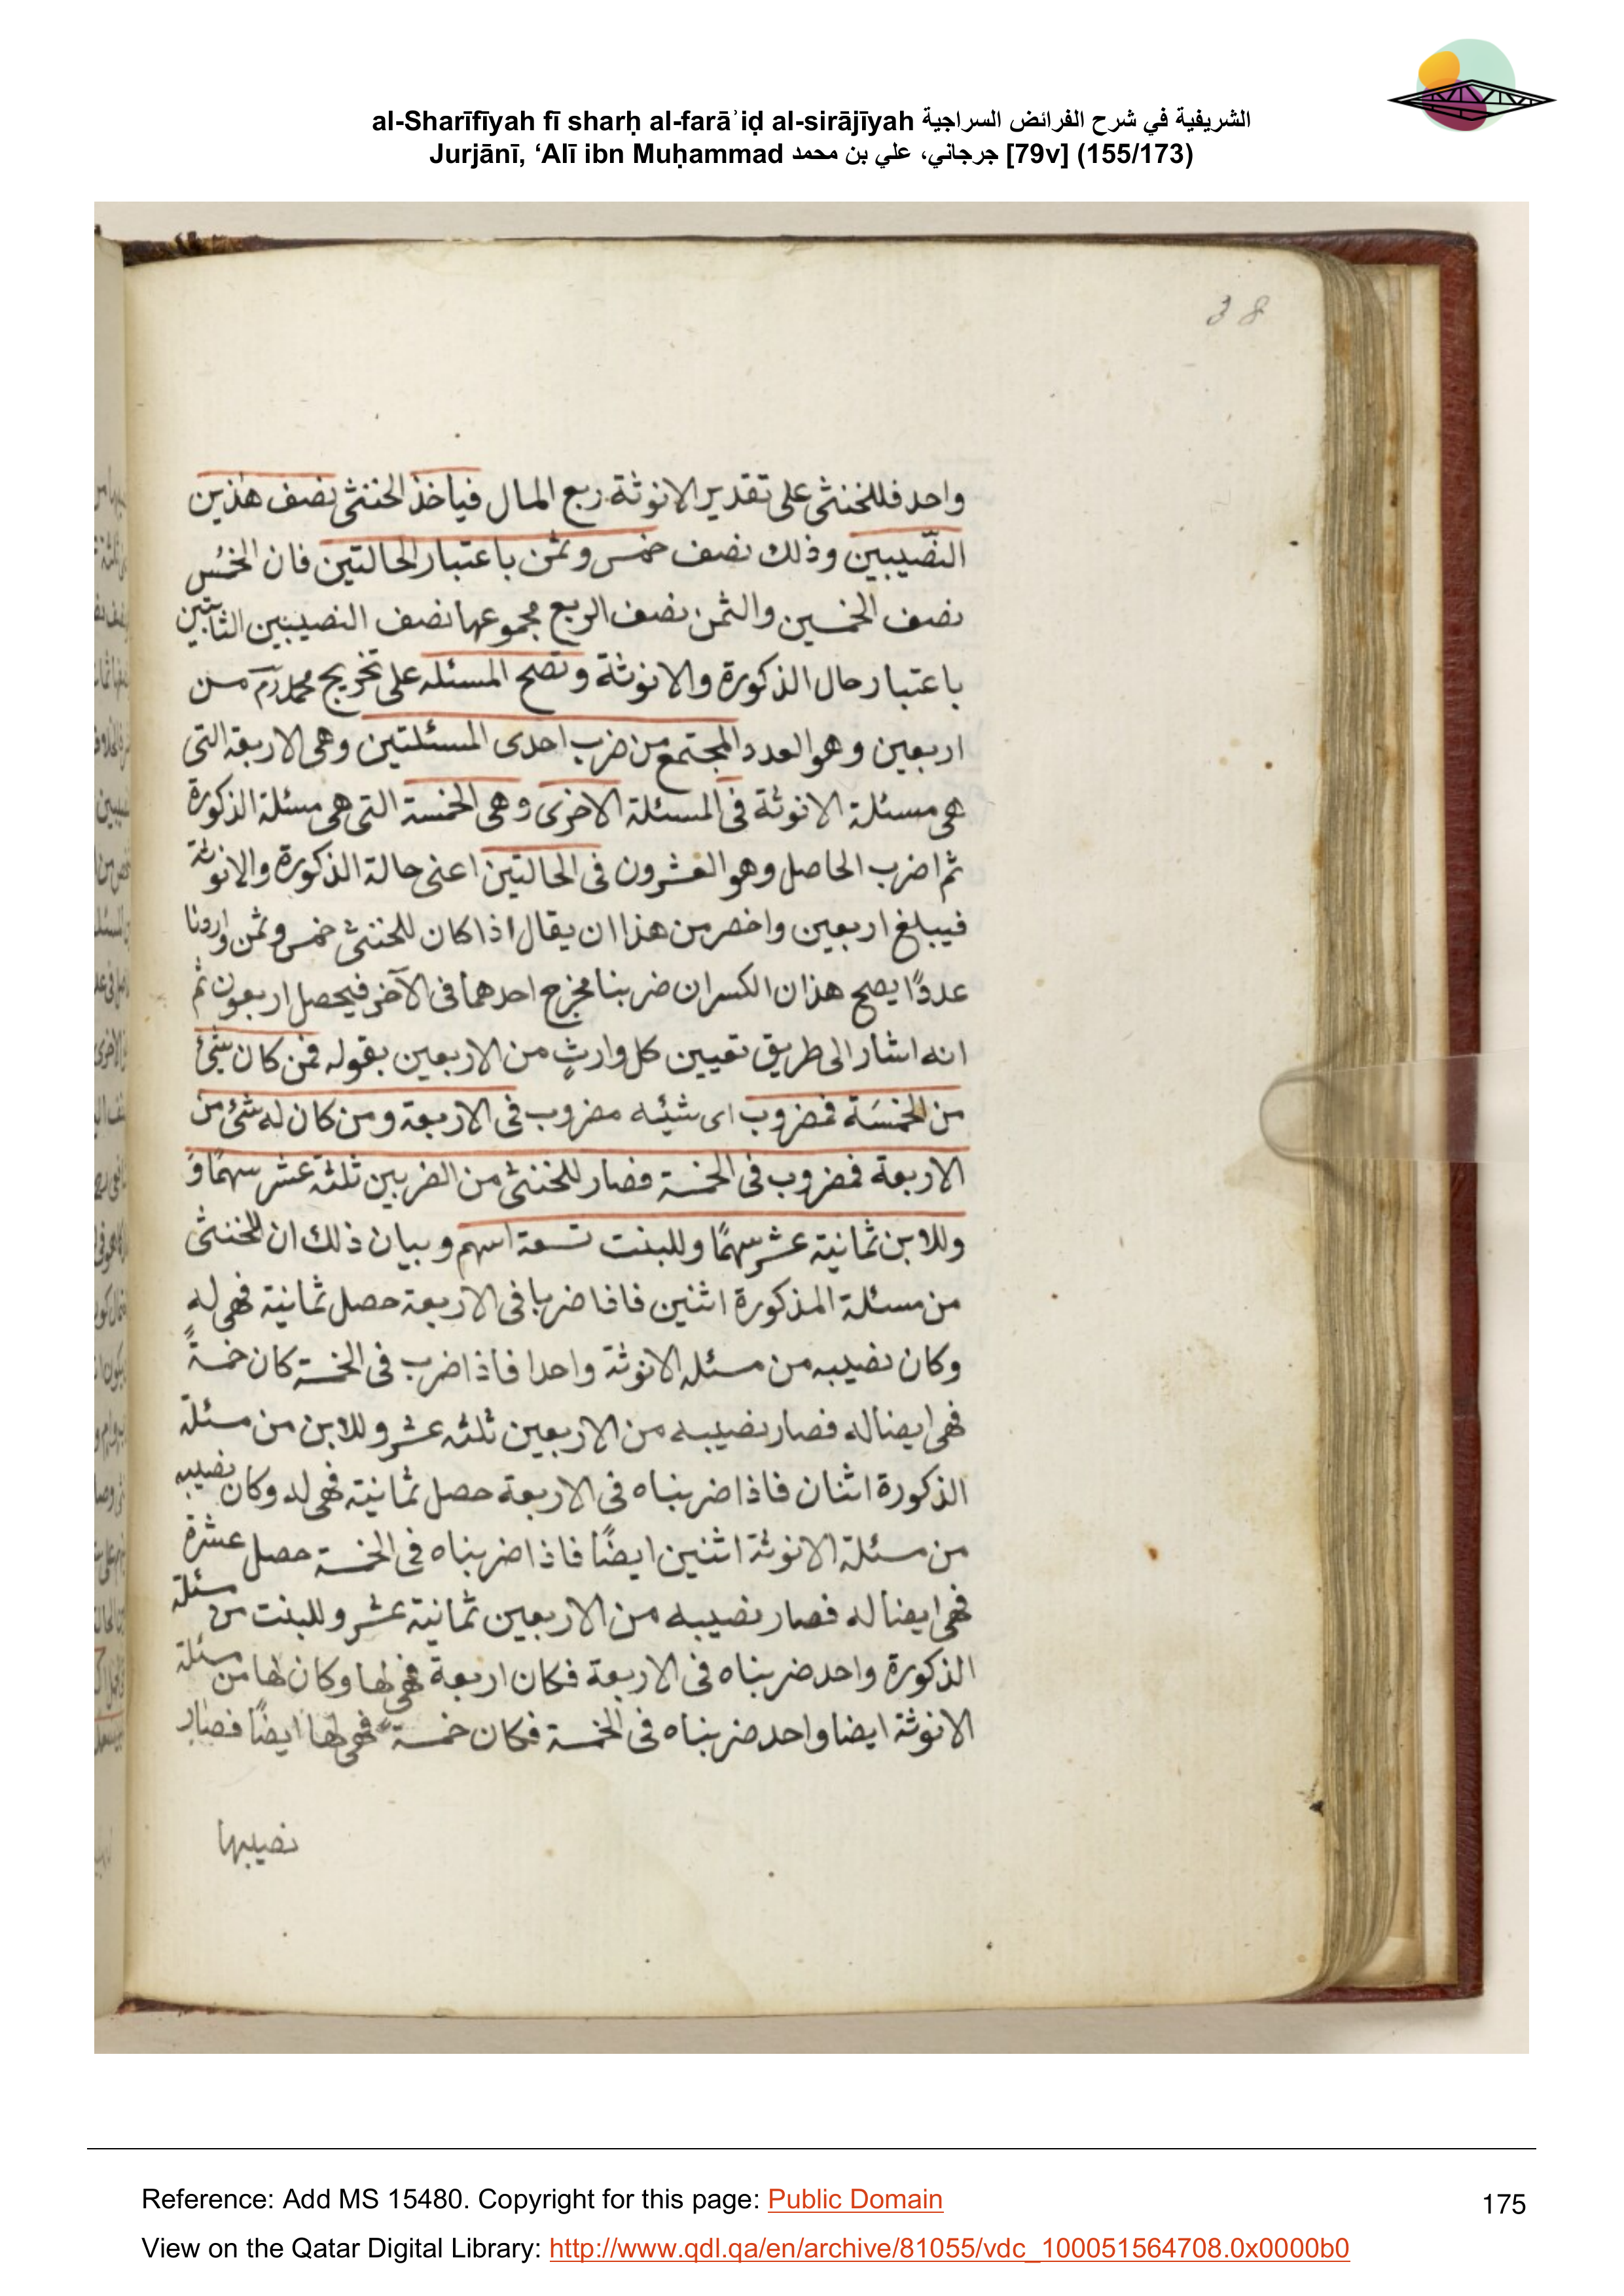 al-Sharīfīyah fī sharḥ al-farāʾiḍ al-sirājīyah الشريفية في شرح الفرائض السراجية
Jurjānī, ‘Alī ibn Muḥammad جرجاني، علي بن محمد [79v] (155/173)
38
واحد فللخنثى على تقدير الانوثة ربع المال فياخذ الخنثى نصف هذين
النّصيبين وذلك نصف خمس وثمن باعتبار الحالتين فان الخمُس
نصف الخمسين والثمن نصف الربع مجموعها نصف النصيبين الثابتين
باعتبار حال الذكورة والانوثة وتصح المسئله على تخريج محمد رَم من
اربعين وهو العدد المجتمع من ضرب احدى المسئلتين وهى الاربعة التى
هى مسئلة الانوثة فى المسئلة الاخرى وهى الخمسة التى هى مسئلة الذكورة
ثم اضرب الحاصل وهو العشرون فى الحالتين اعنى حالة الذكورة والانوثة
فيبلغ اربعين واخصر من هذا ان يقال اذا كان للخنثى خمس وثمن واردنا
عددًا يصح هذان الكسران ضربنا مخرج احدهما فى الآخر فيحصل اربعون ثم
انه اشار الى طريق تعيين كل وارثٍ من الاربعين بقوله فمن كان شئ
من الخمسَة فمضروب اى شيئه مضروب فى الاربعة ومن كان له شئ من
الاربعة فمضروب فى الخمسة فصار للخنثى من الضربين ثلثة عشر سهمًا وَ
وللابن ثمانية عشر سهمًا وللبنت تسعة اسهم وبيان ذلك ان للخنثى
من مسئلة المذكورة اثنين فافا ضربا فى الاربعة حصل ثمانية فهى له
وكان نصيبه من مسئله الانوثة واحدا فاذا ضرب فى الخمسة كان خمسةً
فهى ايضا له فصار نصيبه من الاربعين ثلثه عشر وللابن من مسئلة
الذكورة اثنان فاذا ضربناه فى الاربعة حصل ثمانية فهى له وكان نصيبه
من مسئلة الانوثة اثنين ايضًا فاذا ضربناه فى الخمسة حصل عشرة
فهى ايضا له فصار نصيبه من الاربعين ثمانية عشر وللبنت من مسئلة
الذكورة واحد ضربناه فى الاربعة فكان اربعة فهى لها وكان لها من مسئلة
الانوثة ايضا واحد ضربناه فى الخمسة فكان خمسة فهى لها ايضًا فصار
نصيبها
Reference: Add MS 15480. Copyright for this page: Public Domain
175
View on the Qatar Digital Library: http://www.qdl.qa/en/archive/81055/vdc_100051564708.0x0000b0